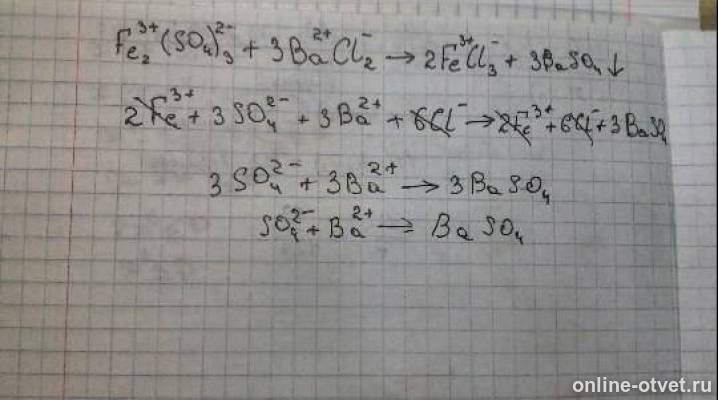 Fe₂³⁺(SO₄)₃²⁻ + 3Ba²⁺Cl₂⁻ → 2Fe³⁺Cl₃⁻ + 3BaSO₄↓
2Fe³⁺ + 3SO₄²⁻ + 3Ba²⁺ + 6Cl⁻ → 2Fe³⁺ + 6Cl⁻ + 3BaSO₄
3SO₄²⁻ + 3Ba²⁺ → 3BaSO₄
SO₄²⁻ + Ba²⁺ → BaSO₄
online-otvet.ru